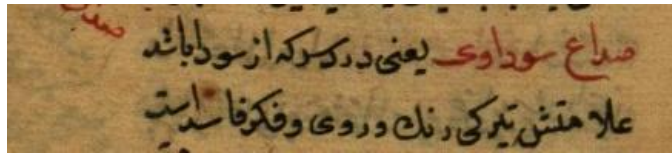 صداع سوداوی یعنی درد سر که از سودا باشد
علامتش تیرکی رنك و روی و فکر فاسد است